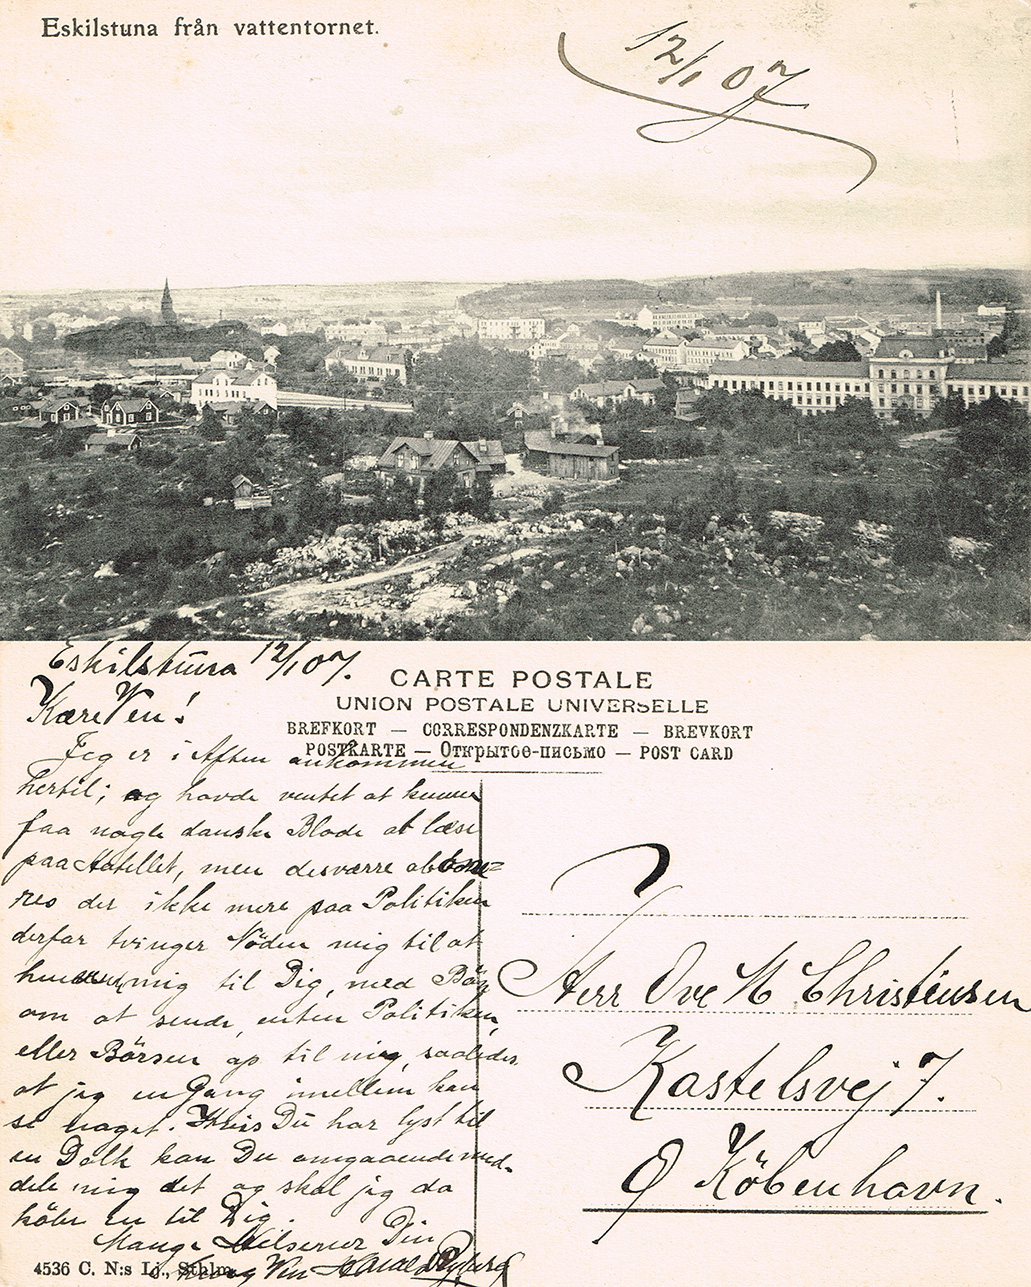 Eskilstuna från vattentornet.
12/1 07
Eskilstuna 12/1 07.
CARTE POSTALE
UNION POSTALE UNIVERSELLE
BREFKORT — CORRESPONDENZKARTE — BREVKORT
POSTKARTE — Открытое-письмо — POST CARD
Kære Ven!
Jeg er i Aften ankommen
hertil; og havde ventet at kunne
faa nogle danske Blade at læse
paa Hotellet, men desværre abbone=
res der ikke mere paa Politiken
derfor tvinger Nöden mig til at
henvende mig til Dig, med Bön
om at sende, enten Politiken,
eller Börsen op til mig, saaledes
at jeg en Gang imellem kan
se noget. Hvis Du har lyst til
en Dolk kan Du omgaaende med-
dele mig det og skal jeg da
köbe en til Dig.
Mange Hilsener Din
Ven Harald
4536 C. N:s Lj., Sthlm.
Herr Ove M Christensen
Kastelsvej 7.
Ø Köbenhavn.